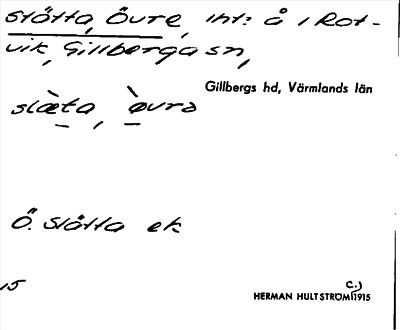 Slåtta, Övre, int: å i Rot-
vik, Gillberga sn,
Gillbergs hd, Värmlands län
slæ̀ta, ø̀vrə
Ö. Slåtta ek
15
HERMAN HULTSTRÖM (C.) 1915